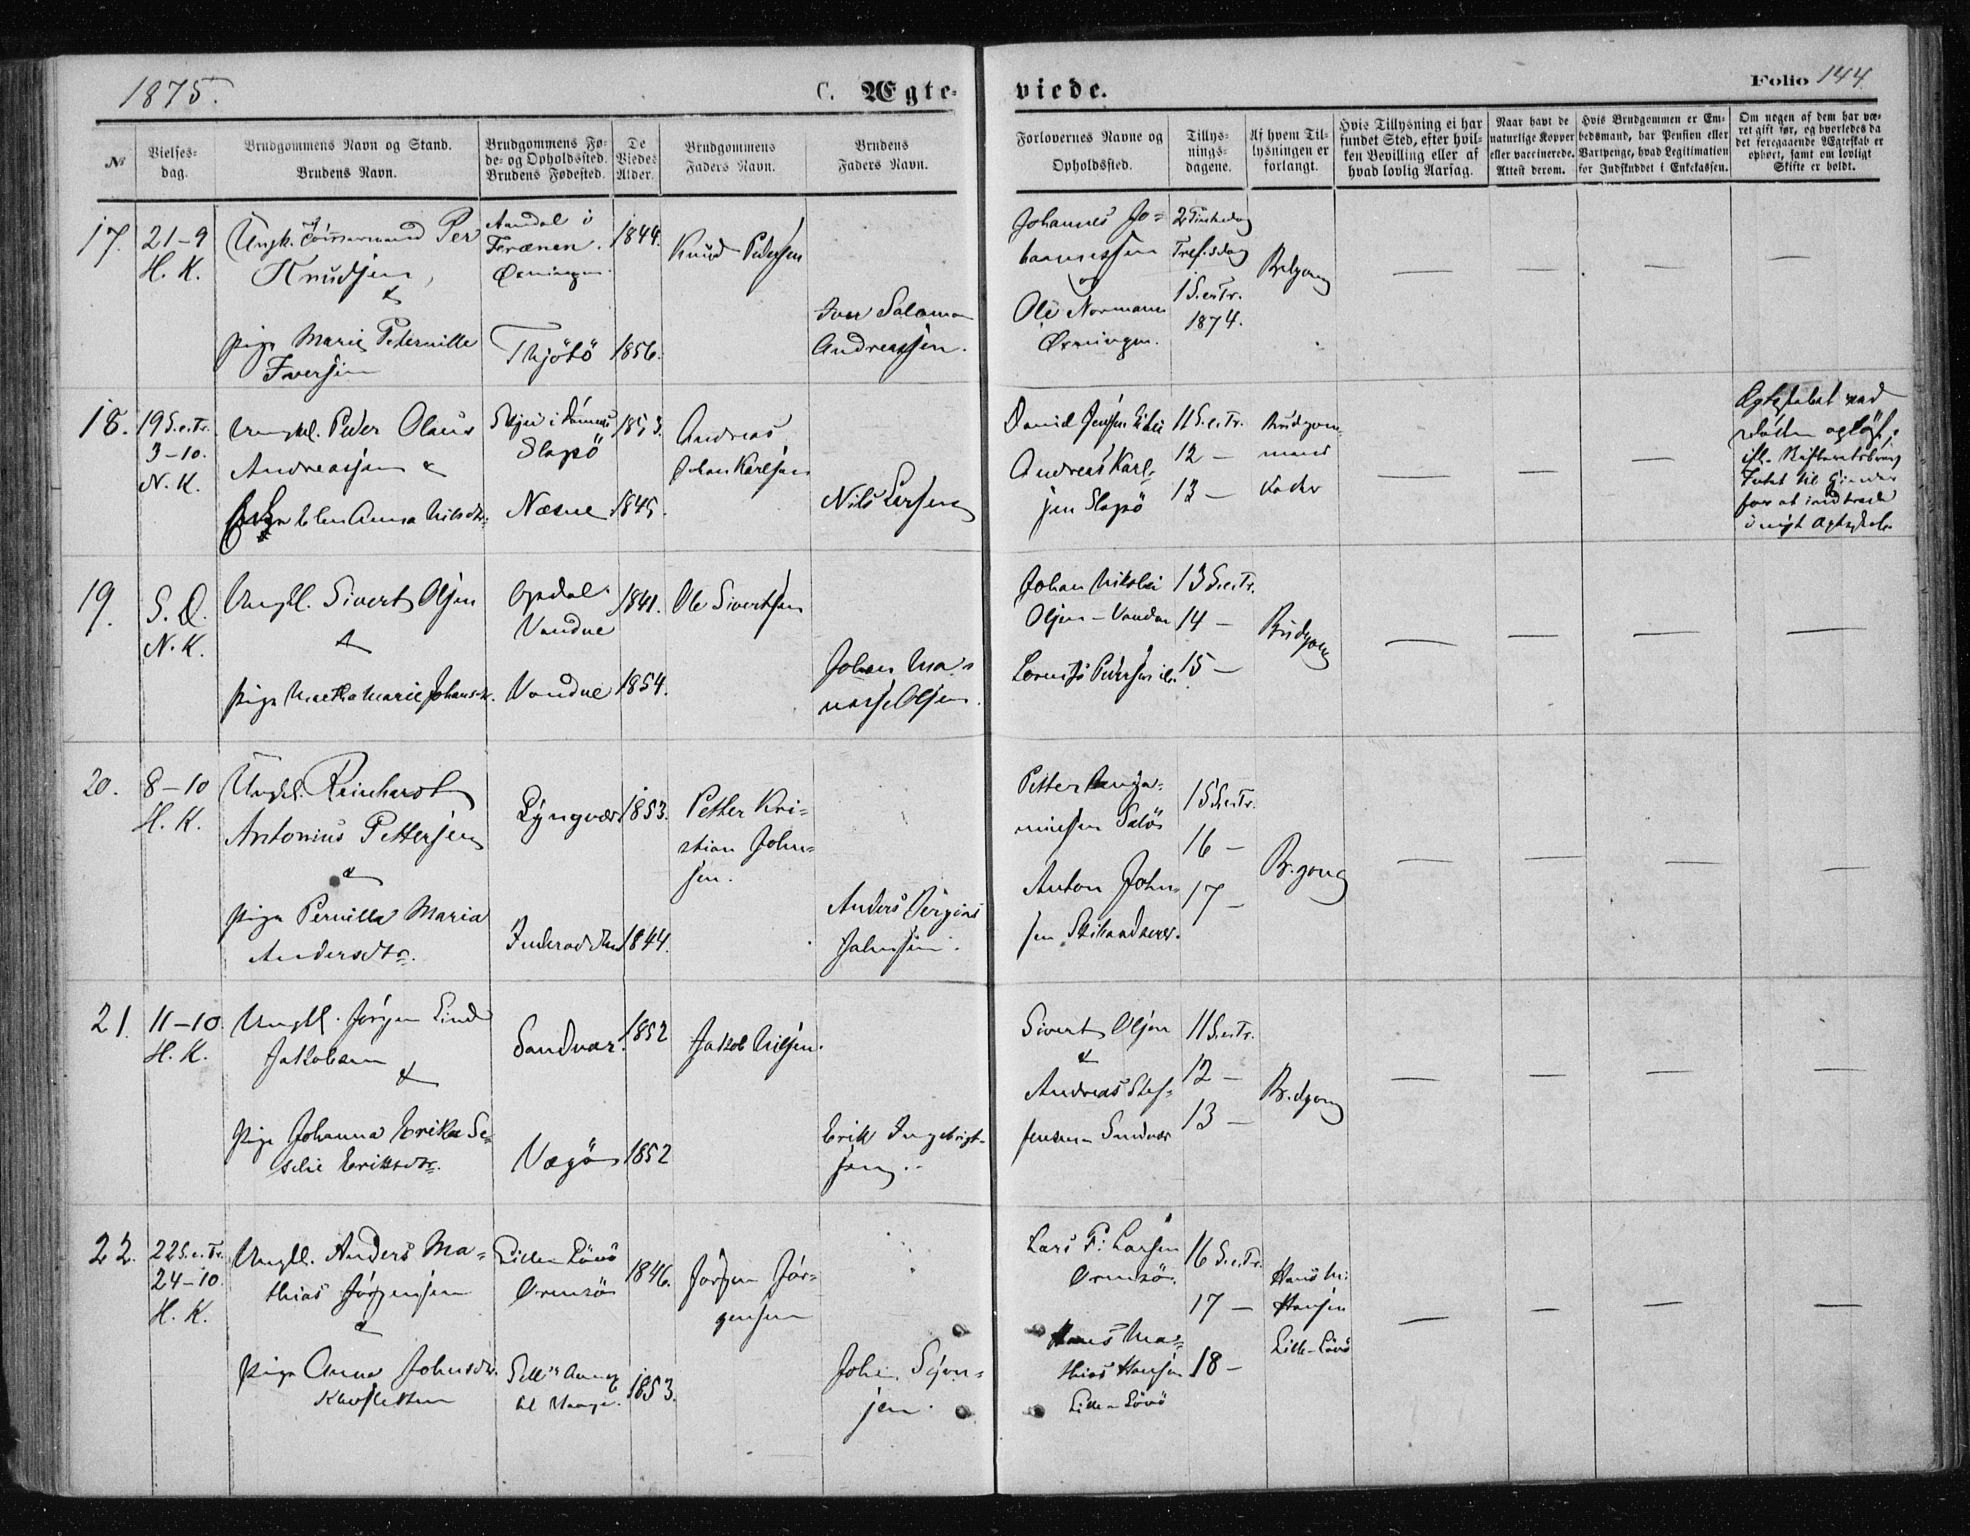 1875.
C. Ægteviede.
Folio 144
№
Vielsesdag.
Brudgommens Navn og Stand.
Brudens Navn.
Brudgommens Føde- og Opholdssted.
Brudens Fødested.
De Viedes Alder.
Brudgommens Faders Navn.
Brudens Faders Navn.
Forlovernes Navne og Opholdssted.
Tillysningsdagene.
Af hvem Tillysningen er forlangt.
Hvis Tillysning ei har fundet Sted, efter hvilken Bevilling eller af hvad lovlig Aarsag.
Naar havt de naturlige Kopper eller vaccinerede. Attest derom.
Hvis Brudgommen er Embedsmand, har Pension eller Vartpenge, hvad Legitimation for Indskuddet i Enkekassen.
Om nogen af dem har været gift før, og hvorledes da det foregaaende Ægteskab er ophørt, samt om lovligt Skifte er holdt.
17.
21-9
H. K.
Ungk. Per
Knudsen,
&
Pige Marie Peternille
Iversen
Aardal i
Thjötö
1844.
1856.
Knud Pedersen
Iver Salamon
Andreassen.
Johannes Jo=
hannessen
og
Ole Normann
2 Pintsedag
Trefsdag
1 S.e.Tr.
1874.
Brdgom
18.
19 S.e.Tr.
3-10.
N. K.
Ungkl. Peder Olaus
Andreassen &
Elen Anna Nilsdtr.
Slapö
Næsne
1853.
1845.
Andreas
Johan Karlsen
Nils Larsen
David Jenssen
Andreas Karl-
sen Slapö
11 S.e.Tr.
12 -
13 -
Brudgom-
mens
Fader
Ægteskabet ved
Döden oplöst;
for at indtræde
i nyt Ægteskab
19.
S. D.
N. K.
Ungkl. Sivert Olsen
&
Pige Martha Marie Johansdtr.
Opdal
Vandve
Vandve
1841.
1854.
Ole Sivertsen
Johan Ma=
nasse Olsen.
Johan Nikolai
Olsen - Vandve
Lornts Pedersen
13 S.e.Tr.
14 -
15 -
Brudgom
20.
8-10
H. K.
Ungkl. Reinhard
Antonius Pettersen
&
Pige Pernilla Maria
Andersdtr.
Lyngvær
1853.
1844.
Petter Kri-
stian John=
sen.
Anders
Johnsen.
Petter Benja=
minsen
Anton John=
sen
15 S.e.Tr.
16 -
17 -
Br.gom
21.
11-10.
H. K.
Ungkl. Jörgen Lind
Jakobsen
&
Pige Johanna Erika Se-
selie Eriksdtr.
Sandvær.
Vægö
1852
1852
Jakob Nilsen.
Erik Ingebrigt-
sen.
Sivert Olsen
&
Andreas Stef-
fensen Sandvær
11 S.e.Tr.
12 -
13 -
Br.dgom
22.
22 S.e.Tr.
24-10.
H. K.
Ungkl. Anders Ma=
thias Jörgensen
&
Pige Anna Johnsdtr.
Lille Lövö
Ormsö
1846.
1853.
Jörgen Jör-
gensen
John
sen.
Lars P. Larsen
Ormsö.
Hans Ma=
thias Hansen
Lille Lövö
16 S.e.Tr.
17 -
18 -
Hans M.
Hansen
Lille-Lövö